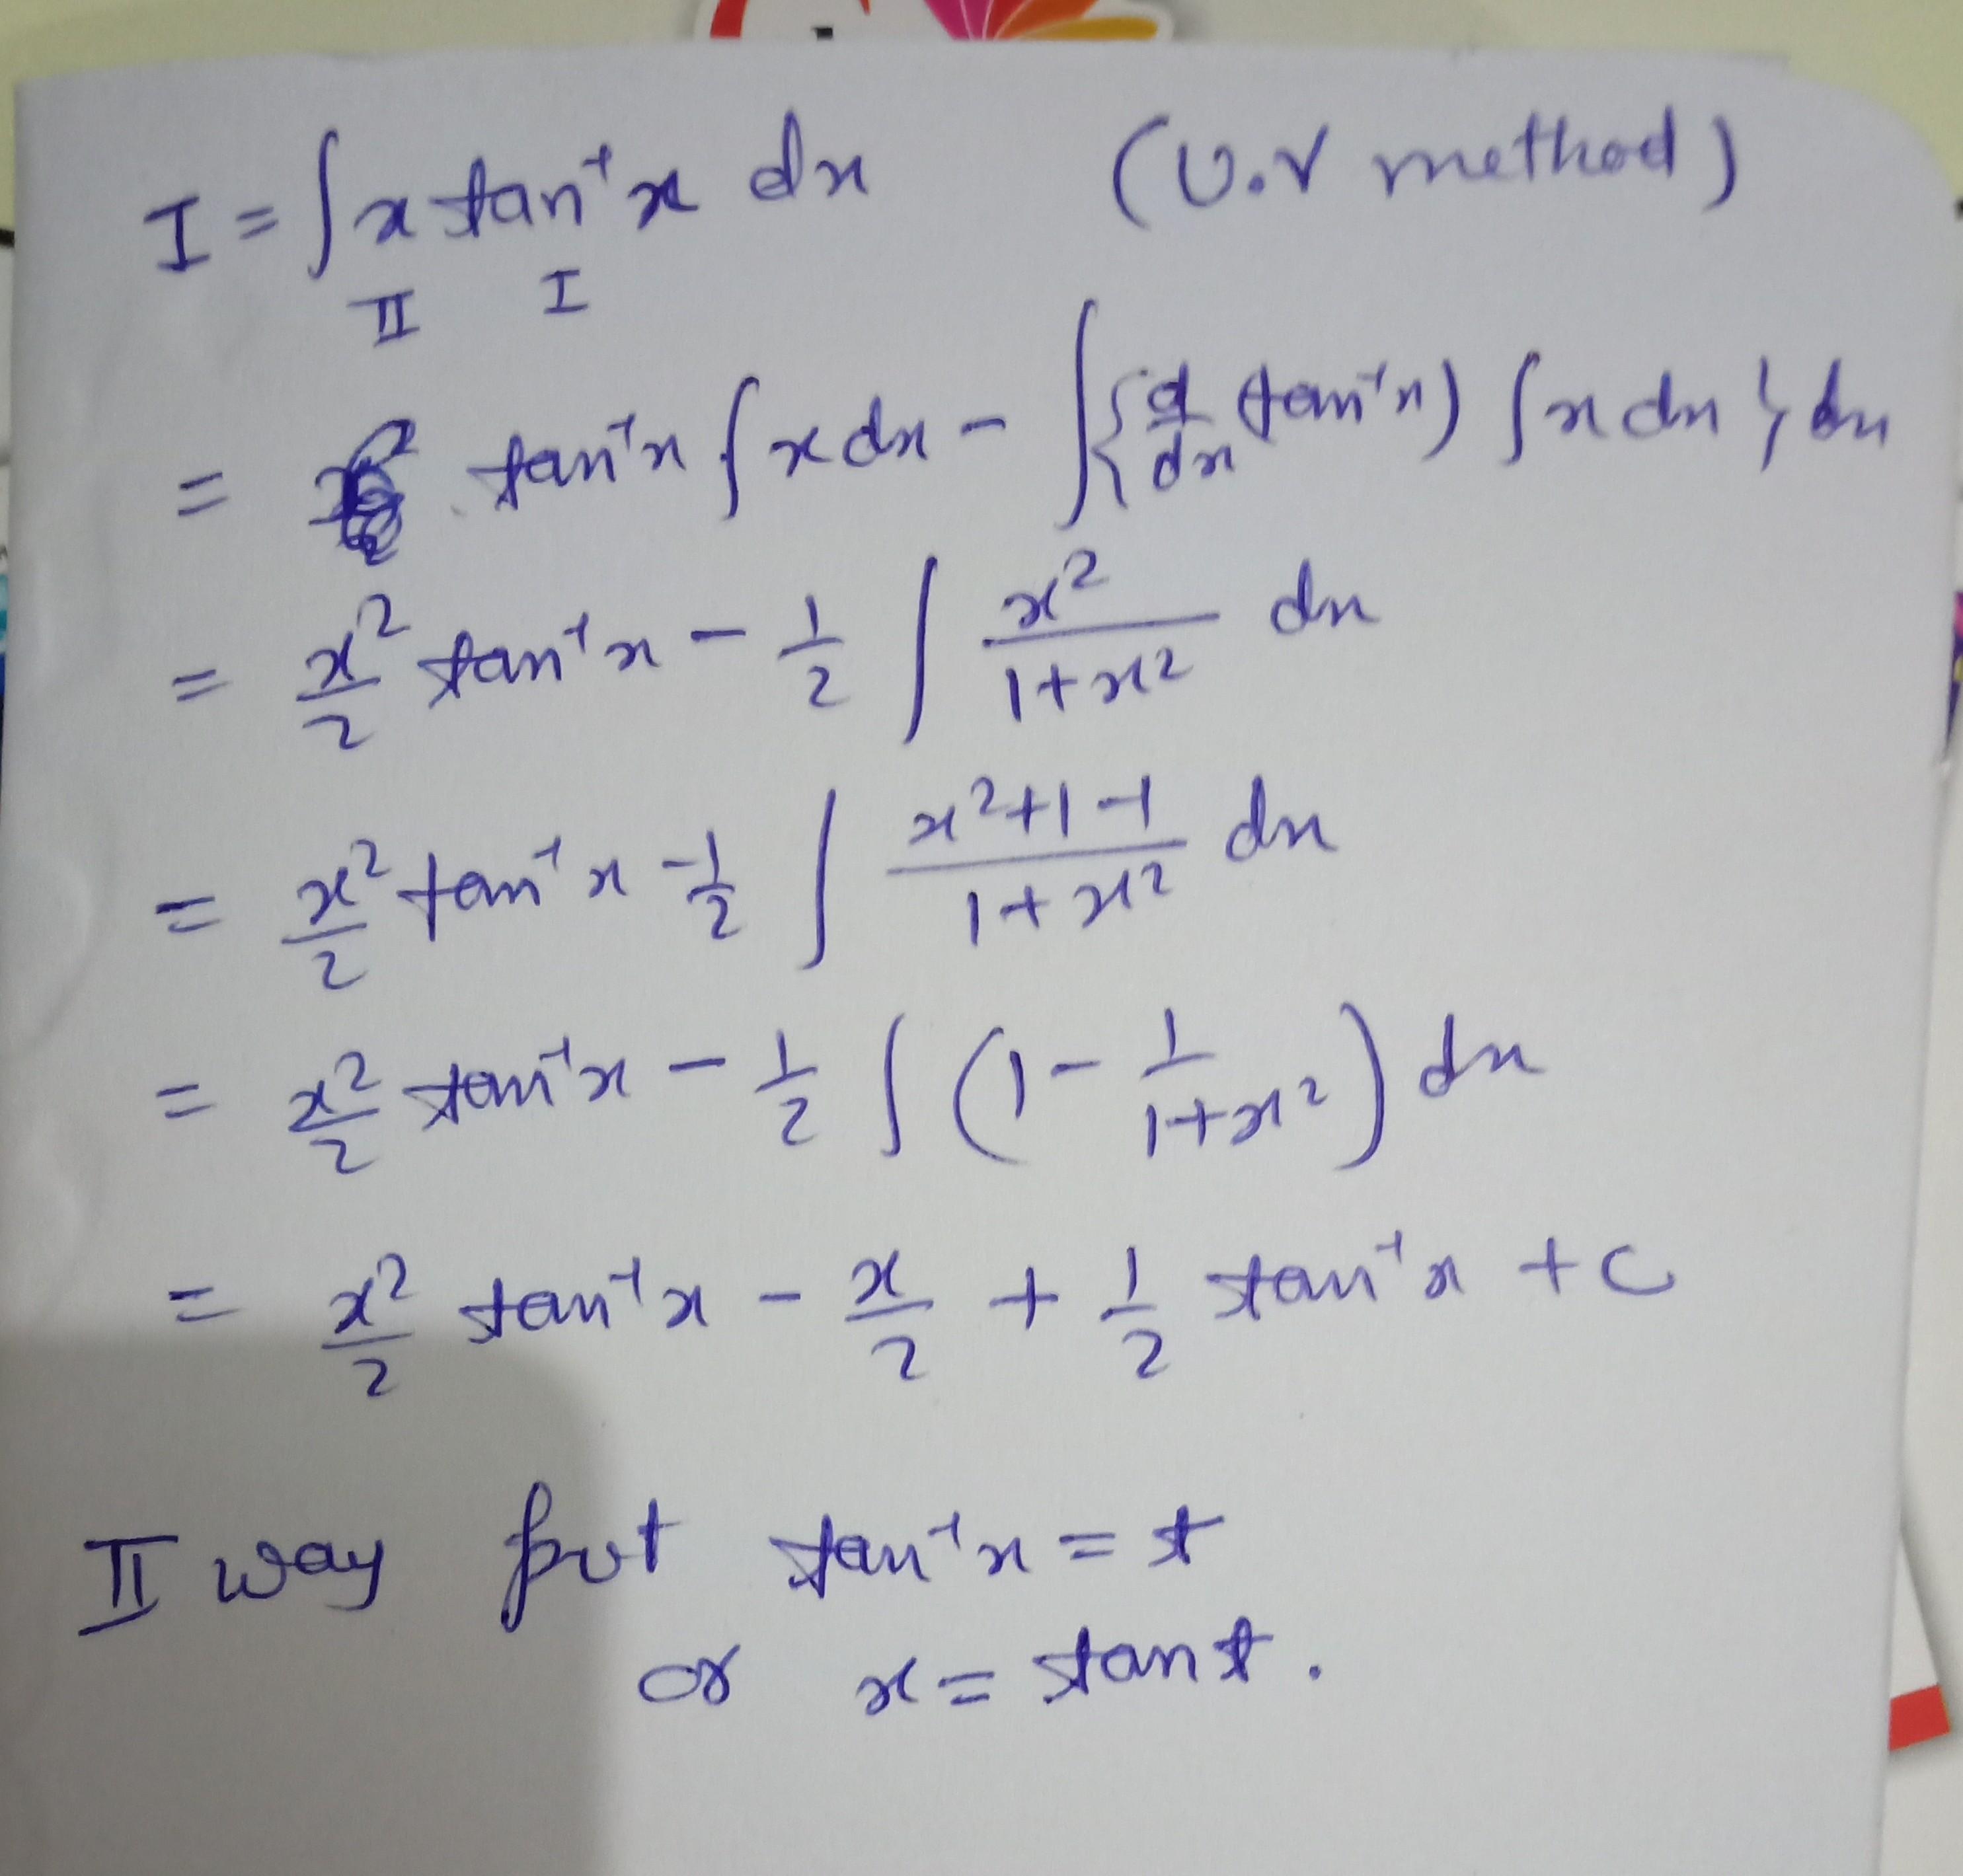 I = ∫ x tan⁻¹x dx (U.V method)
II I
= tan⁻¹x ∫ x dx - ∫ { d/dx (tan⁻¹x) ∫ x dx } dx
= x²/2 tan⁻¹x - 1/2 ∫ x²/(1+x²) dx
= x²/2 tan⁻¹x - 1/2 ∫ (x²+1-1)/(1+x²) dx
= x²/2 tan⁻¹x - 1/2 ∫ (1 - 1/(1+x²)) dx
= x²/2 tan⁻¹x - x/2 + 1/2 tan⁻¹x + c
II way put tan⁻¹x = t
or x = tan t.